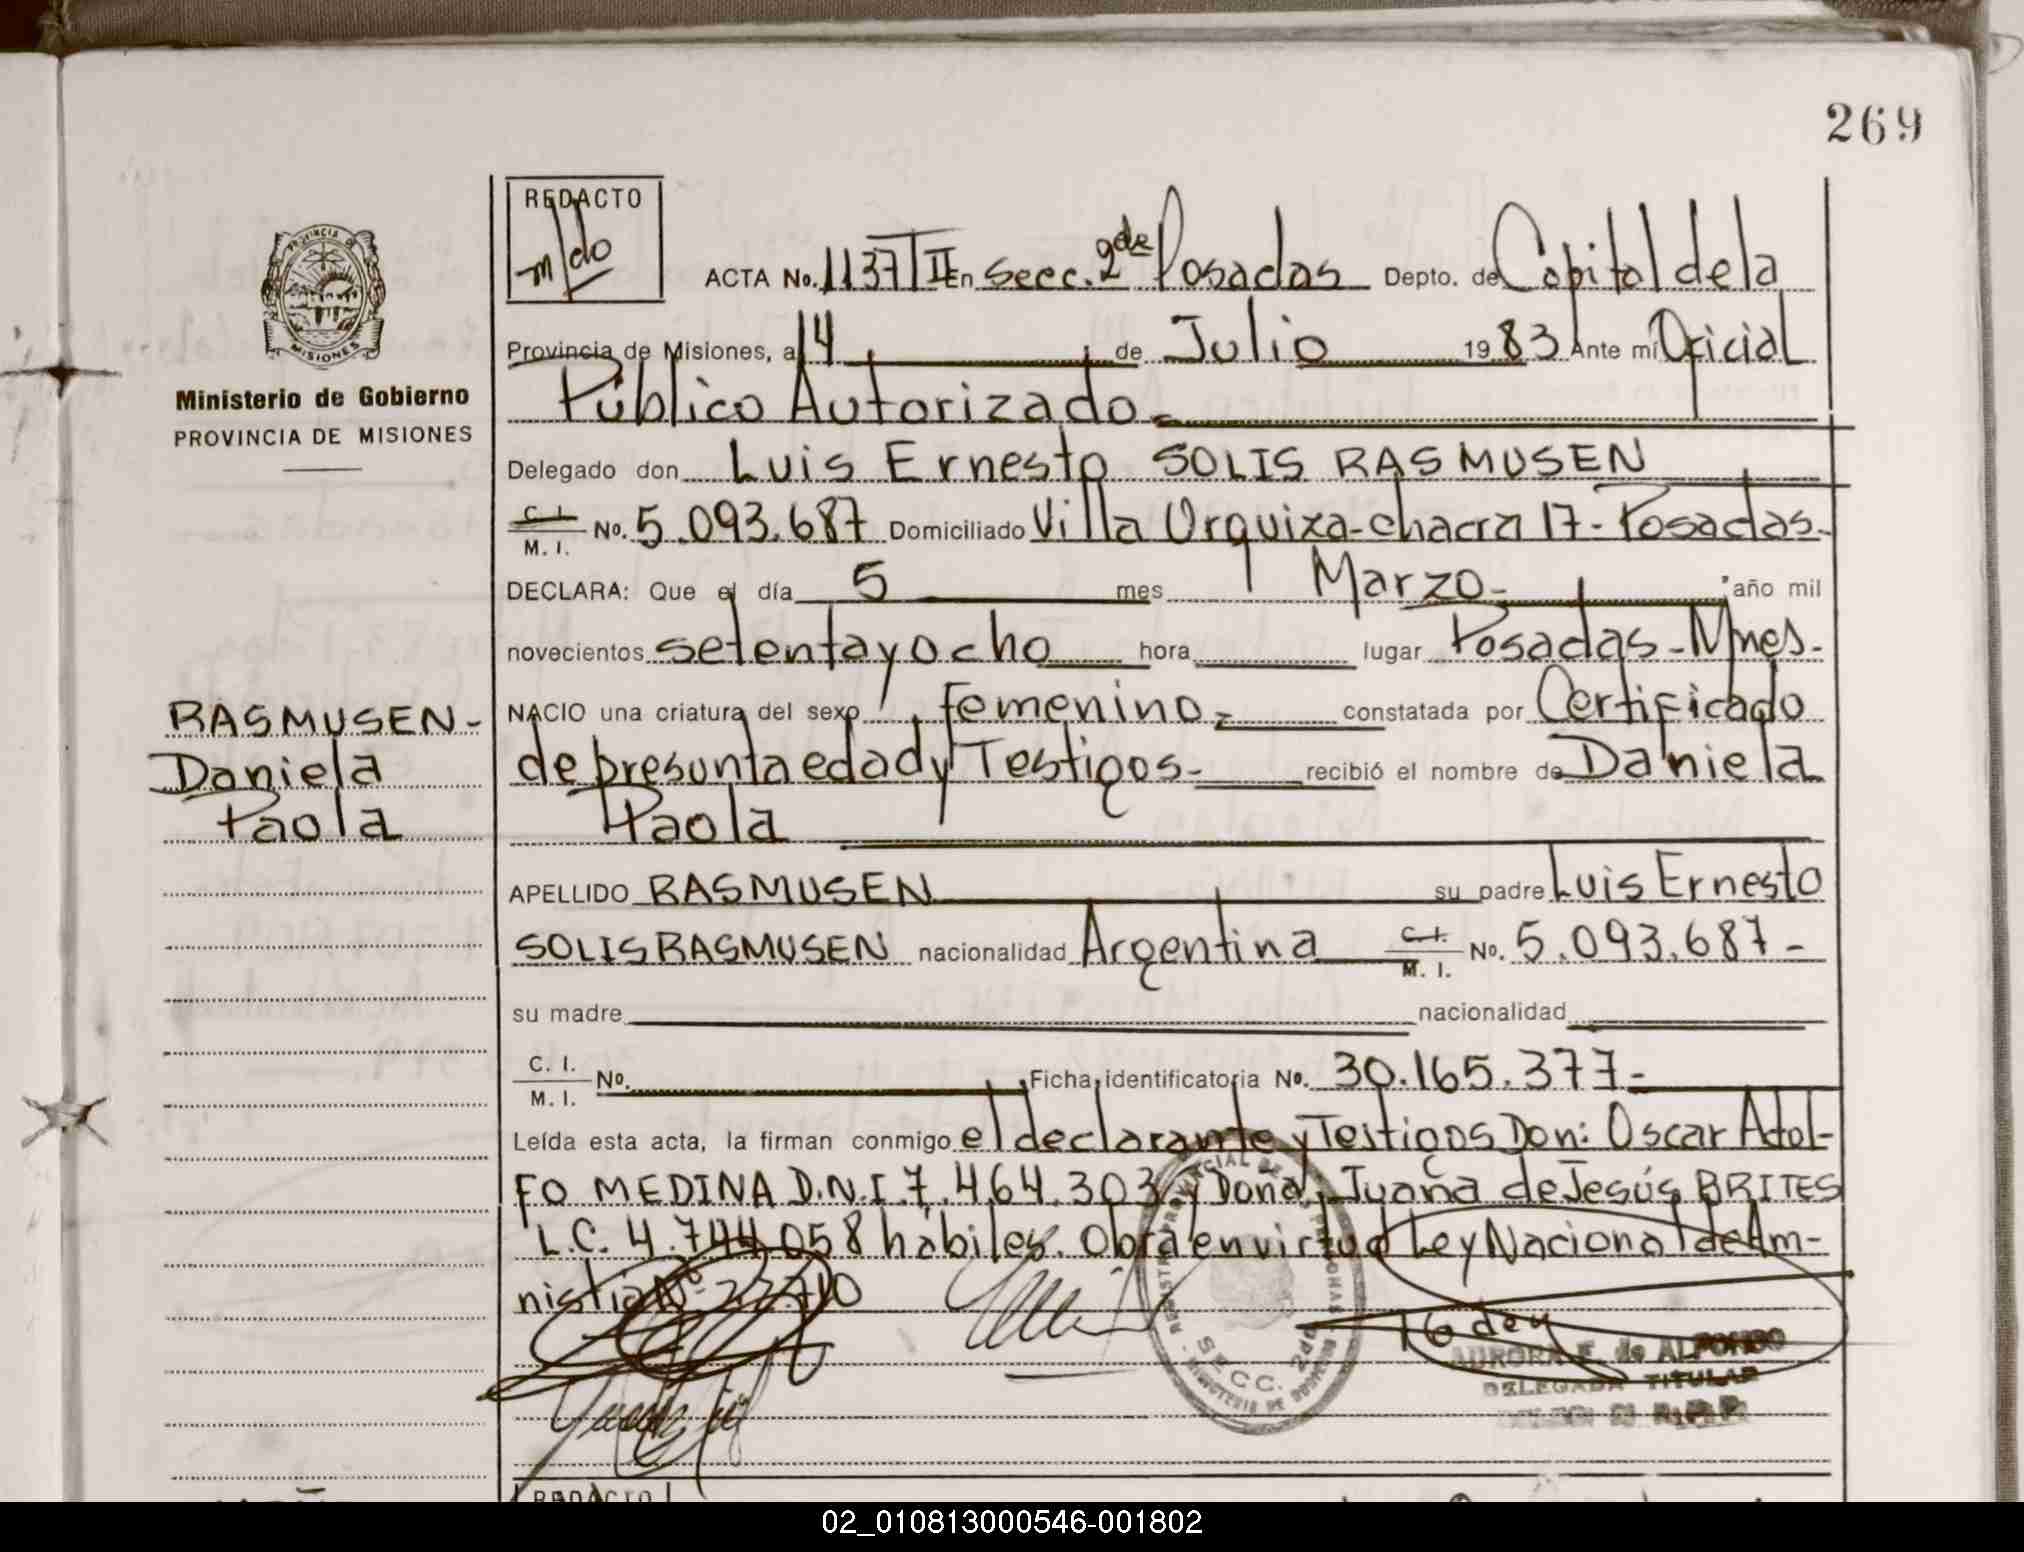 269
REDACTO
m/do
PROVINCIA DE
MISIONES
Ministerio de Gobierno
PROVINCIA DE MISIONES
ACTA No. 1137 T II En Secc. 2da Posadas Depto. de Capital de la
Provincia de Misiones, a 14 de Julio 1983 Ante mi Oficial
Público Autorizado.
Delegado don Luis Ernesto SOLIS RASMUSEN
C. I. M. I. No. 5.093.687 Domiciliado Villa Urquixa-chacra 17-Posadas-
DECLARA: Que el día 5 mes Marzo- año mil
novecientos setenta y ocho hora lugar Posadas-Mnes-
NACIO una criatura del sexo femenino, constatada por Certificado
de presunta edad y Testigos- recibió el nombre de Daniela
Paola
RASMUSEN-
Daniela
Paola
APELLIDO RASMUSEN su padre Luis Ernesto
SOLIS RASMUSEN nacionalidad Argentina C. I. M. I. No. 5.093.687-
su madre nacionalidad
C. I. M. I. No. Ficha identificatoria No. 30.165.377-
Leída esta acta, la firman conmigo el declarante y Testigos Don: Oscar Adol-
FO MEDINA D.N.I. 7.464.303 y Doña, Juana de Jesús BRITES
L.C. 4.744.058 hábiles. Obra en virtud Ley Nacional de Am-
nistía Nº 22.710
SECC. 2da
AURORA F. de ALFONSO
DELEGADA TITULAR
REDACTO
02_010813000546-001802